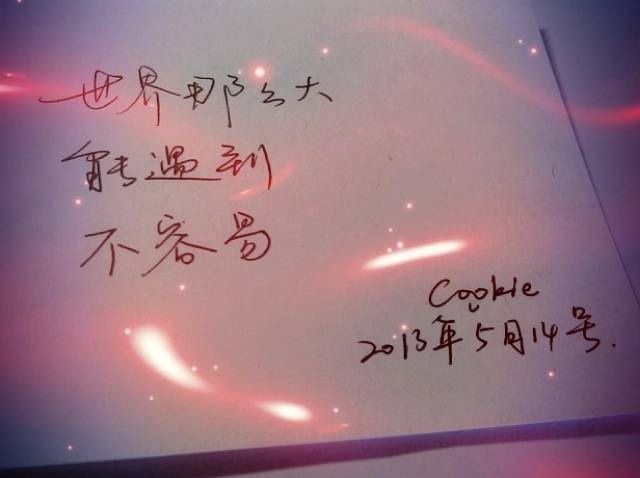 世界那么大
能遇到
不容易
Cookie
2013年5月14号.